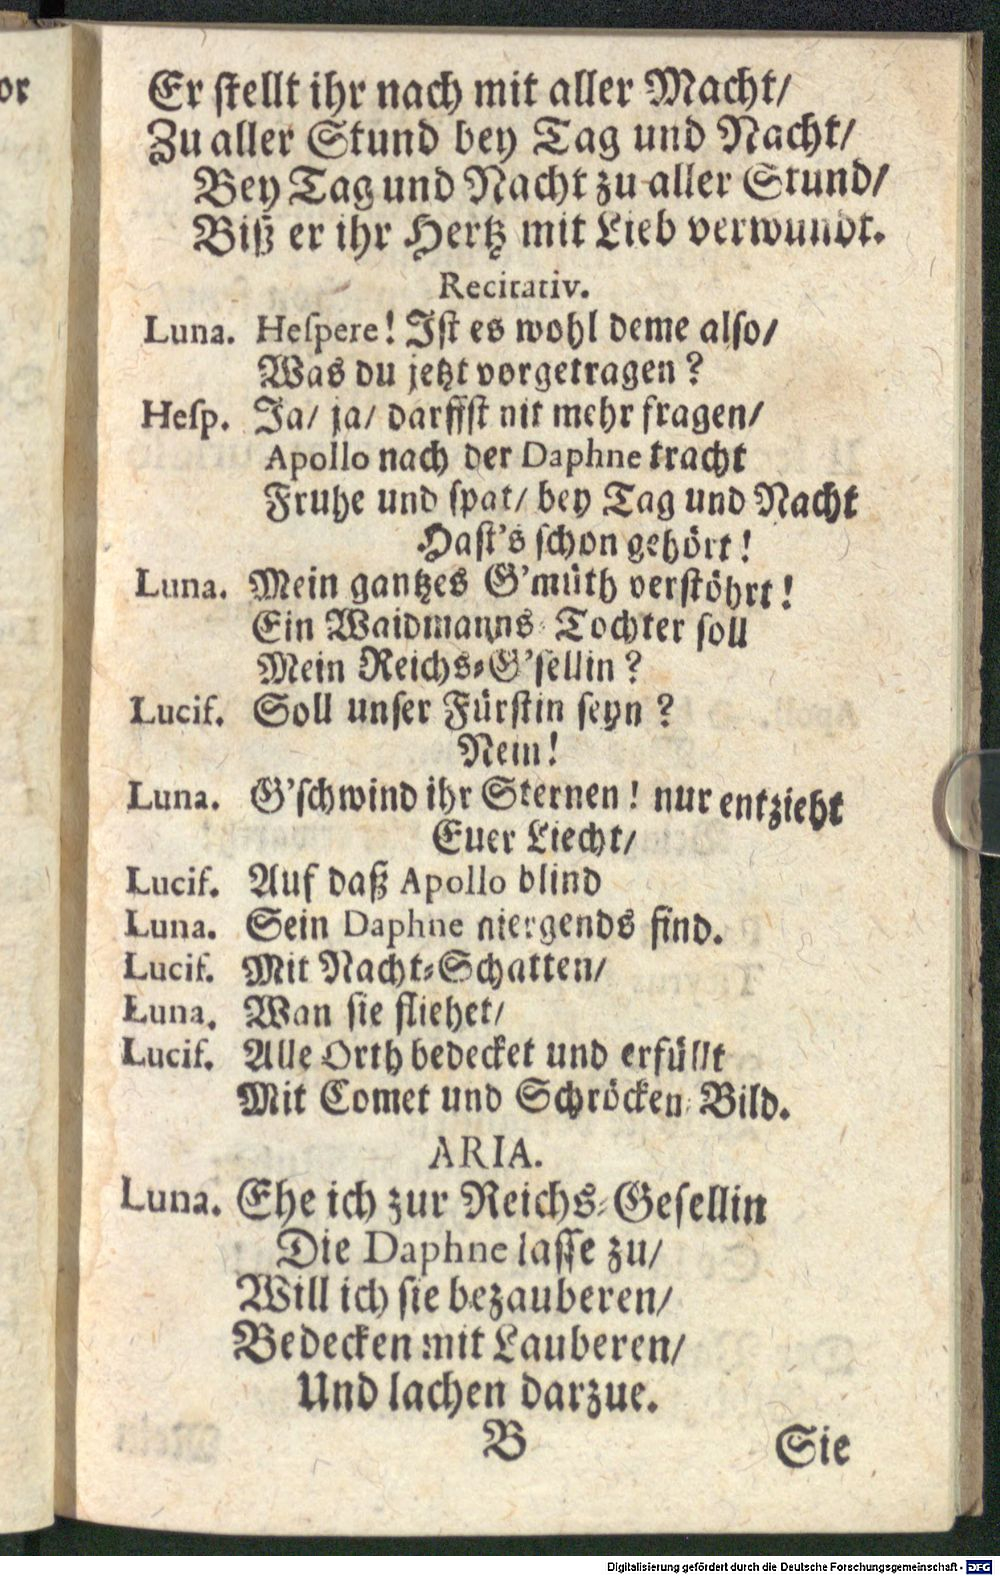 or
Er stellt ihr nach mit aller Macht/
Zu aller Stund bey Tag und Nacht/
Bey Tag und Nacht zu aller Stund/
Biß er ihr Hertz mit Lieb verwundt.
Recitativ.
Luna. Heſpere! Iſt es wohl deme alſo/
Was du jetzt vorgetragen?
Heſp. Ja/ ja/ darffſt nit mehr fragen/
Apollo nach der Daphne tracht
Fruhe und ſpat/ bey Tag und Nacht
Haſt's ſchon gehört!
Luna. Mein gantzes G'müth verſtöhrt!
Ein Waidmanns-Tochter ſoll
Mein Reichs-G'ſellin?
Lucif. Soll unſer Fürſtin ſeyn?
Nein!
Luna. G'ſchwind ihr Sternen! nur entzieht
Euer Liecht/
Lucif. Auf daß Apollo blind
Luna. Sein Daphne niergends find.
Lucif. Mit Nacht-Schatten/
Luna. Wan ſie fliehet/
Lucif. Alle Orth bedecket und erfüllt
Mit Comet und Schröcken-Bild.
ARIA.
Luna. Ehe ich zur Reichs-Geſellin
Die Daphne laſſe zu/
Will ich ſie bezauberen/
Bedecken mit Lauberen/
Und lachen darzue.
B Sie
Digitalisierung gefördert durch die Deutsche Forschungsgemeinschaft - DFG